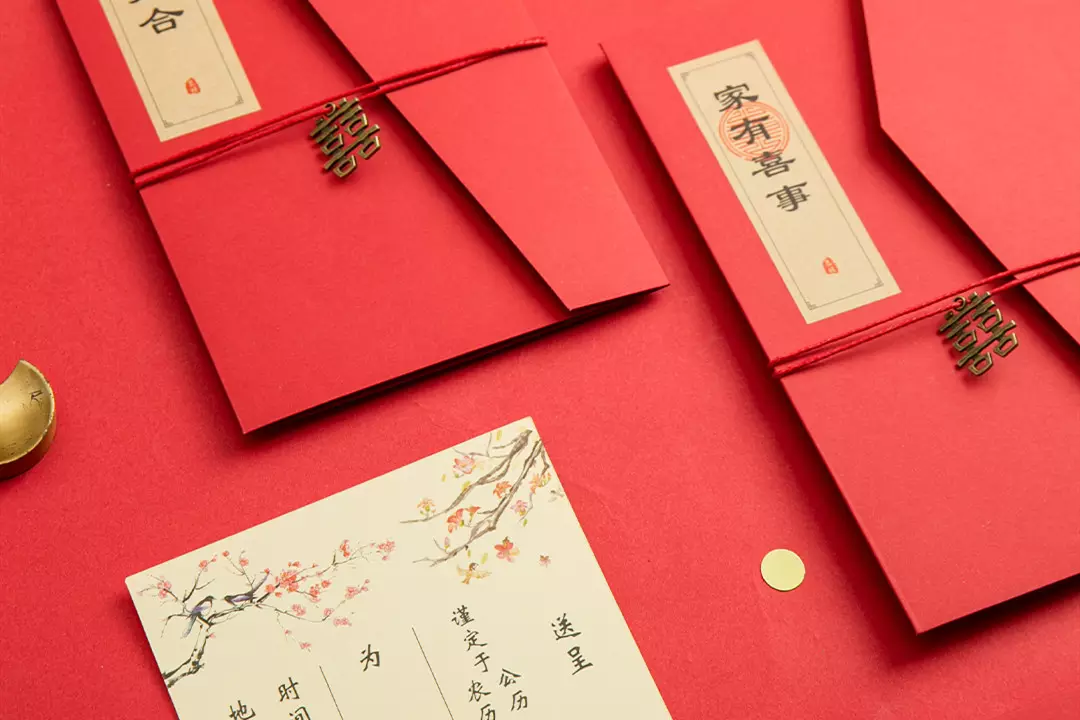 合
囍
家有喜事
囍
送呈
谨定于
公历
农历
为
时间
地